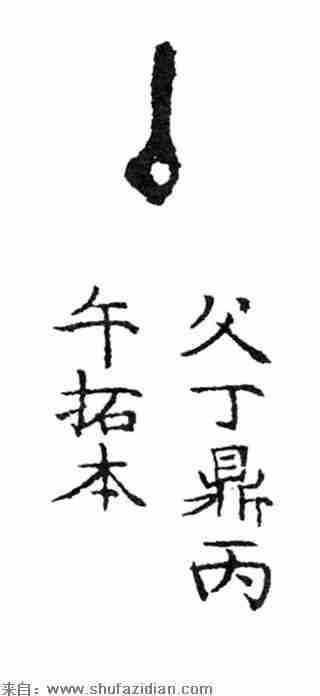 父丁鼎丙
午拓本
来自：www.shufazidian.com